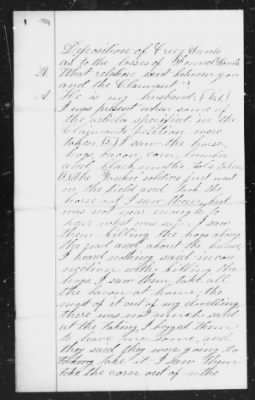 Deposition of Lucy Sands
as to the losses of Samuel Sands
Q. What relation exist between you
and the Claimant
A. He is my husband. (1st)
I was present when some of
the articles specified in the
Claimants petition were
taken (2) I saw the horse,
hogs, bacon, corn, 
and Black smiths tools taken
(3) The Yankee soldiers just went
in the field and took the
horse out I saw them but
was not near enough to
hear what was said I saw
them killing the hogs along
the road and about the house
I heard nothing said in con
nection with killing the
hogs I saw them take all
the bacon at home, the
most of it out of my dwelling
there was not much said
at the taking, I begged them
to leave me some, and
they said they were going to
take it I saw them
take the corn out of the